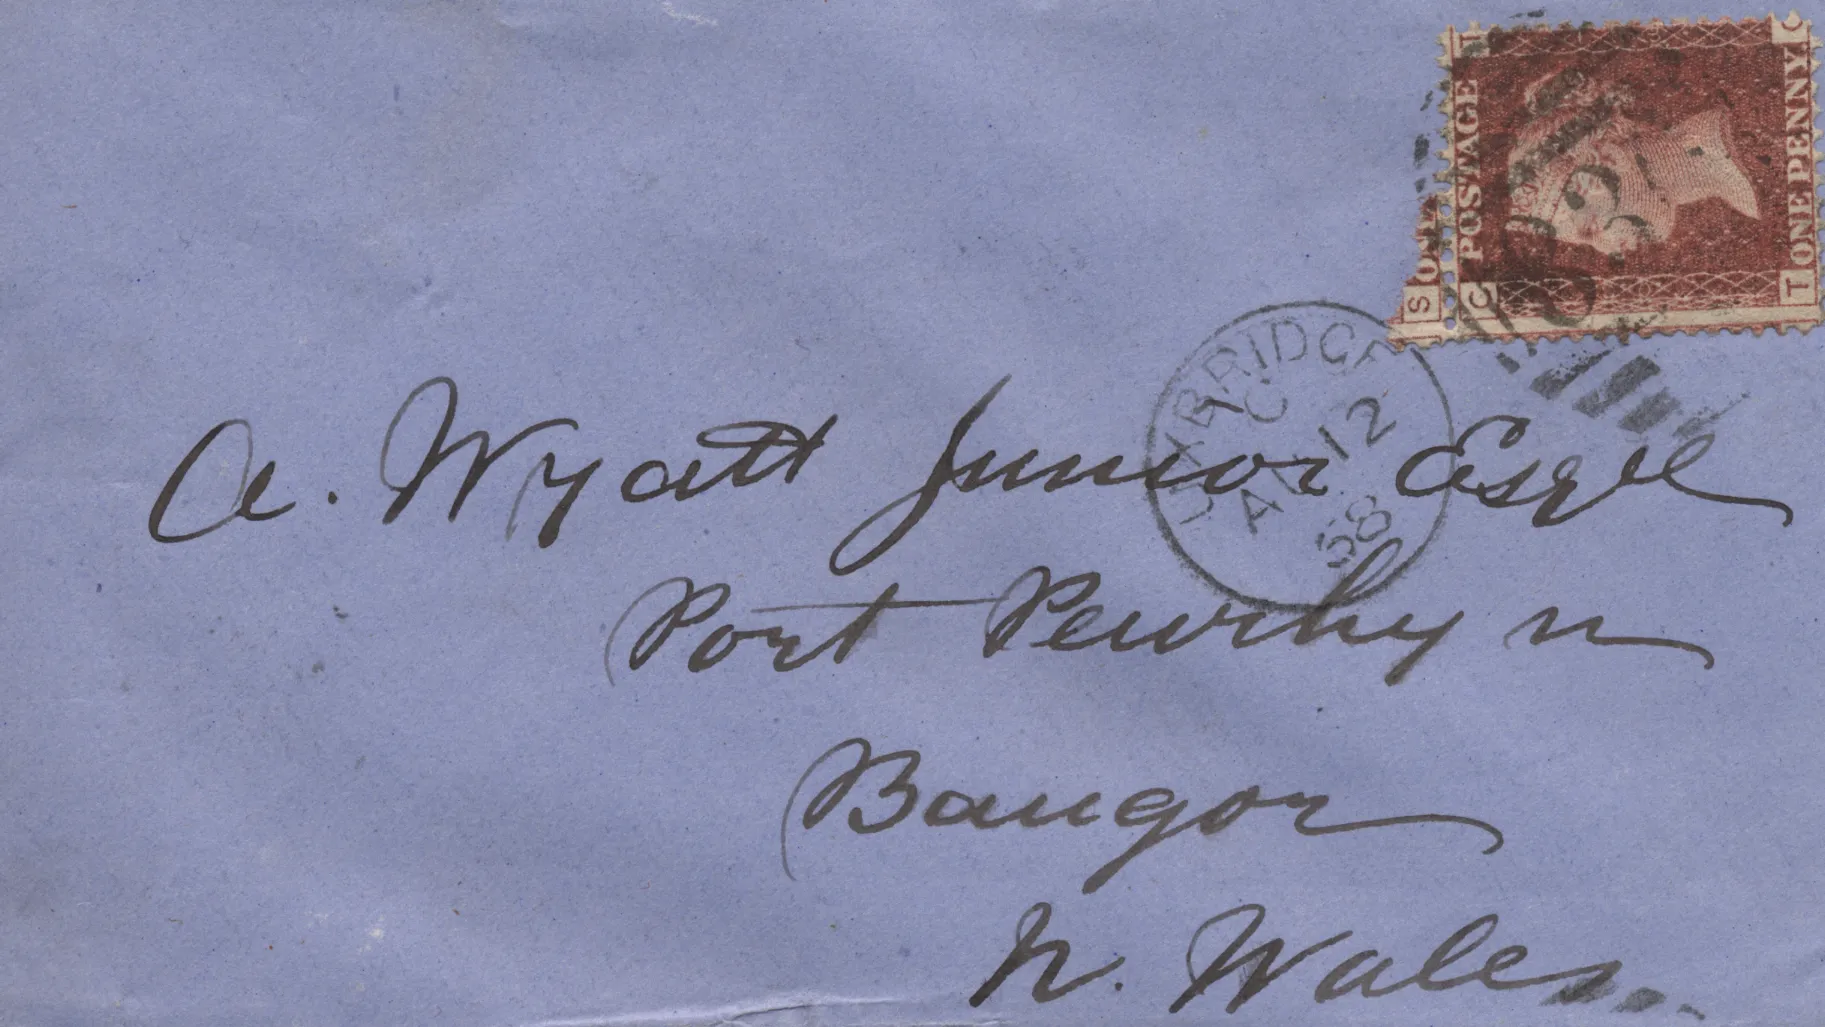 POSTAGE
ONE PENNY
C T
S
UXBRIDGE
C
AU 12
68
A. Wyatt Junior Esqre
Port Penrhyn
Bangor
N. Wales